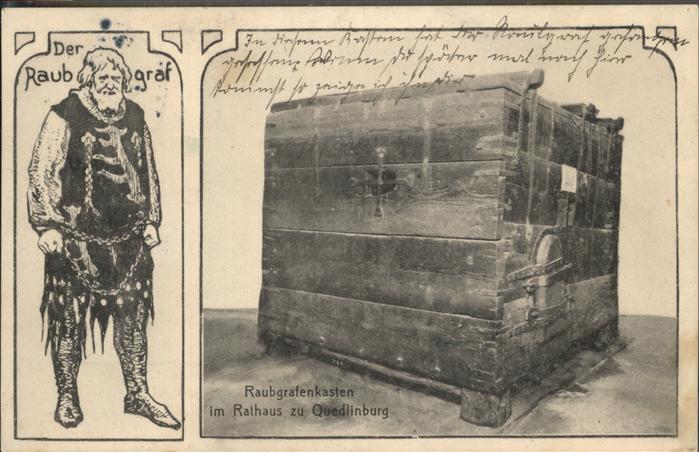 Der
Raubgraf
In diesem Kasten hat der Raubgraf gefangen
gesessen. Wenn du später mal nach hier
kommst so zeige ich ihn dir
Raubgrafenkasten
im Rathaus zu Quedlinburg